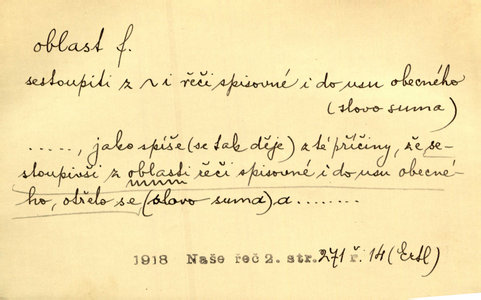 oblast f.
sestoupiti z ~ i řeči spisovné i do usu obecného
(slovo suma)
....., jako spíše (se tak děje) z té příčiny, že se-
stoupivši z oblasti řeči spisovné i do usu obecné-
ho, otřelo se (slovo suma) a ........
1918 Naše řeč 2. str. 271 ř. 14 (Ertl)